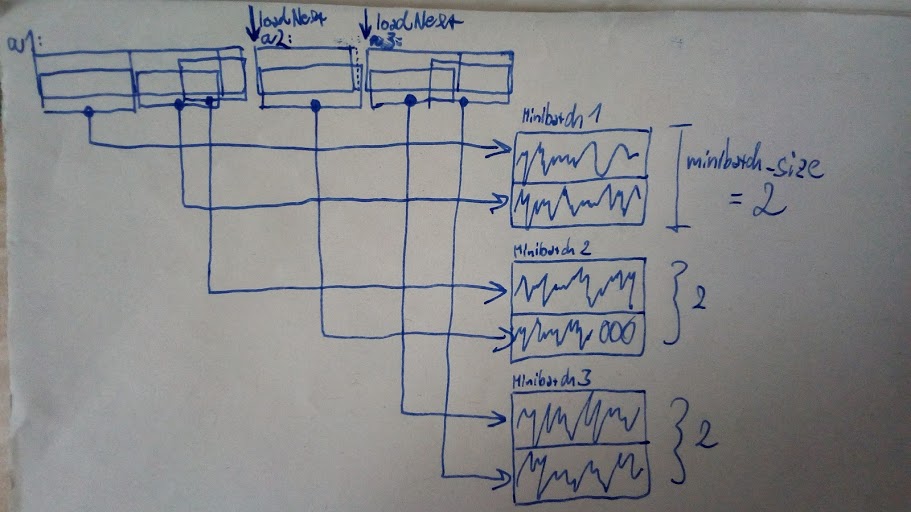 loadNext loadNext
a1: a2: a3:
Minibatch 1
minibatch_size
= 2
Minibatch 2
2
000
Minibatch 3
2